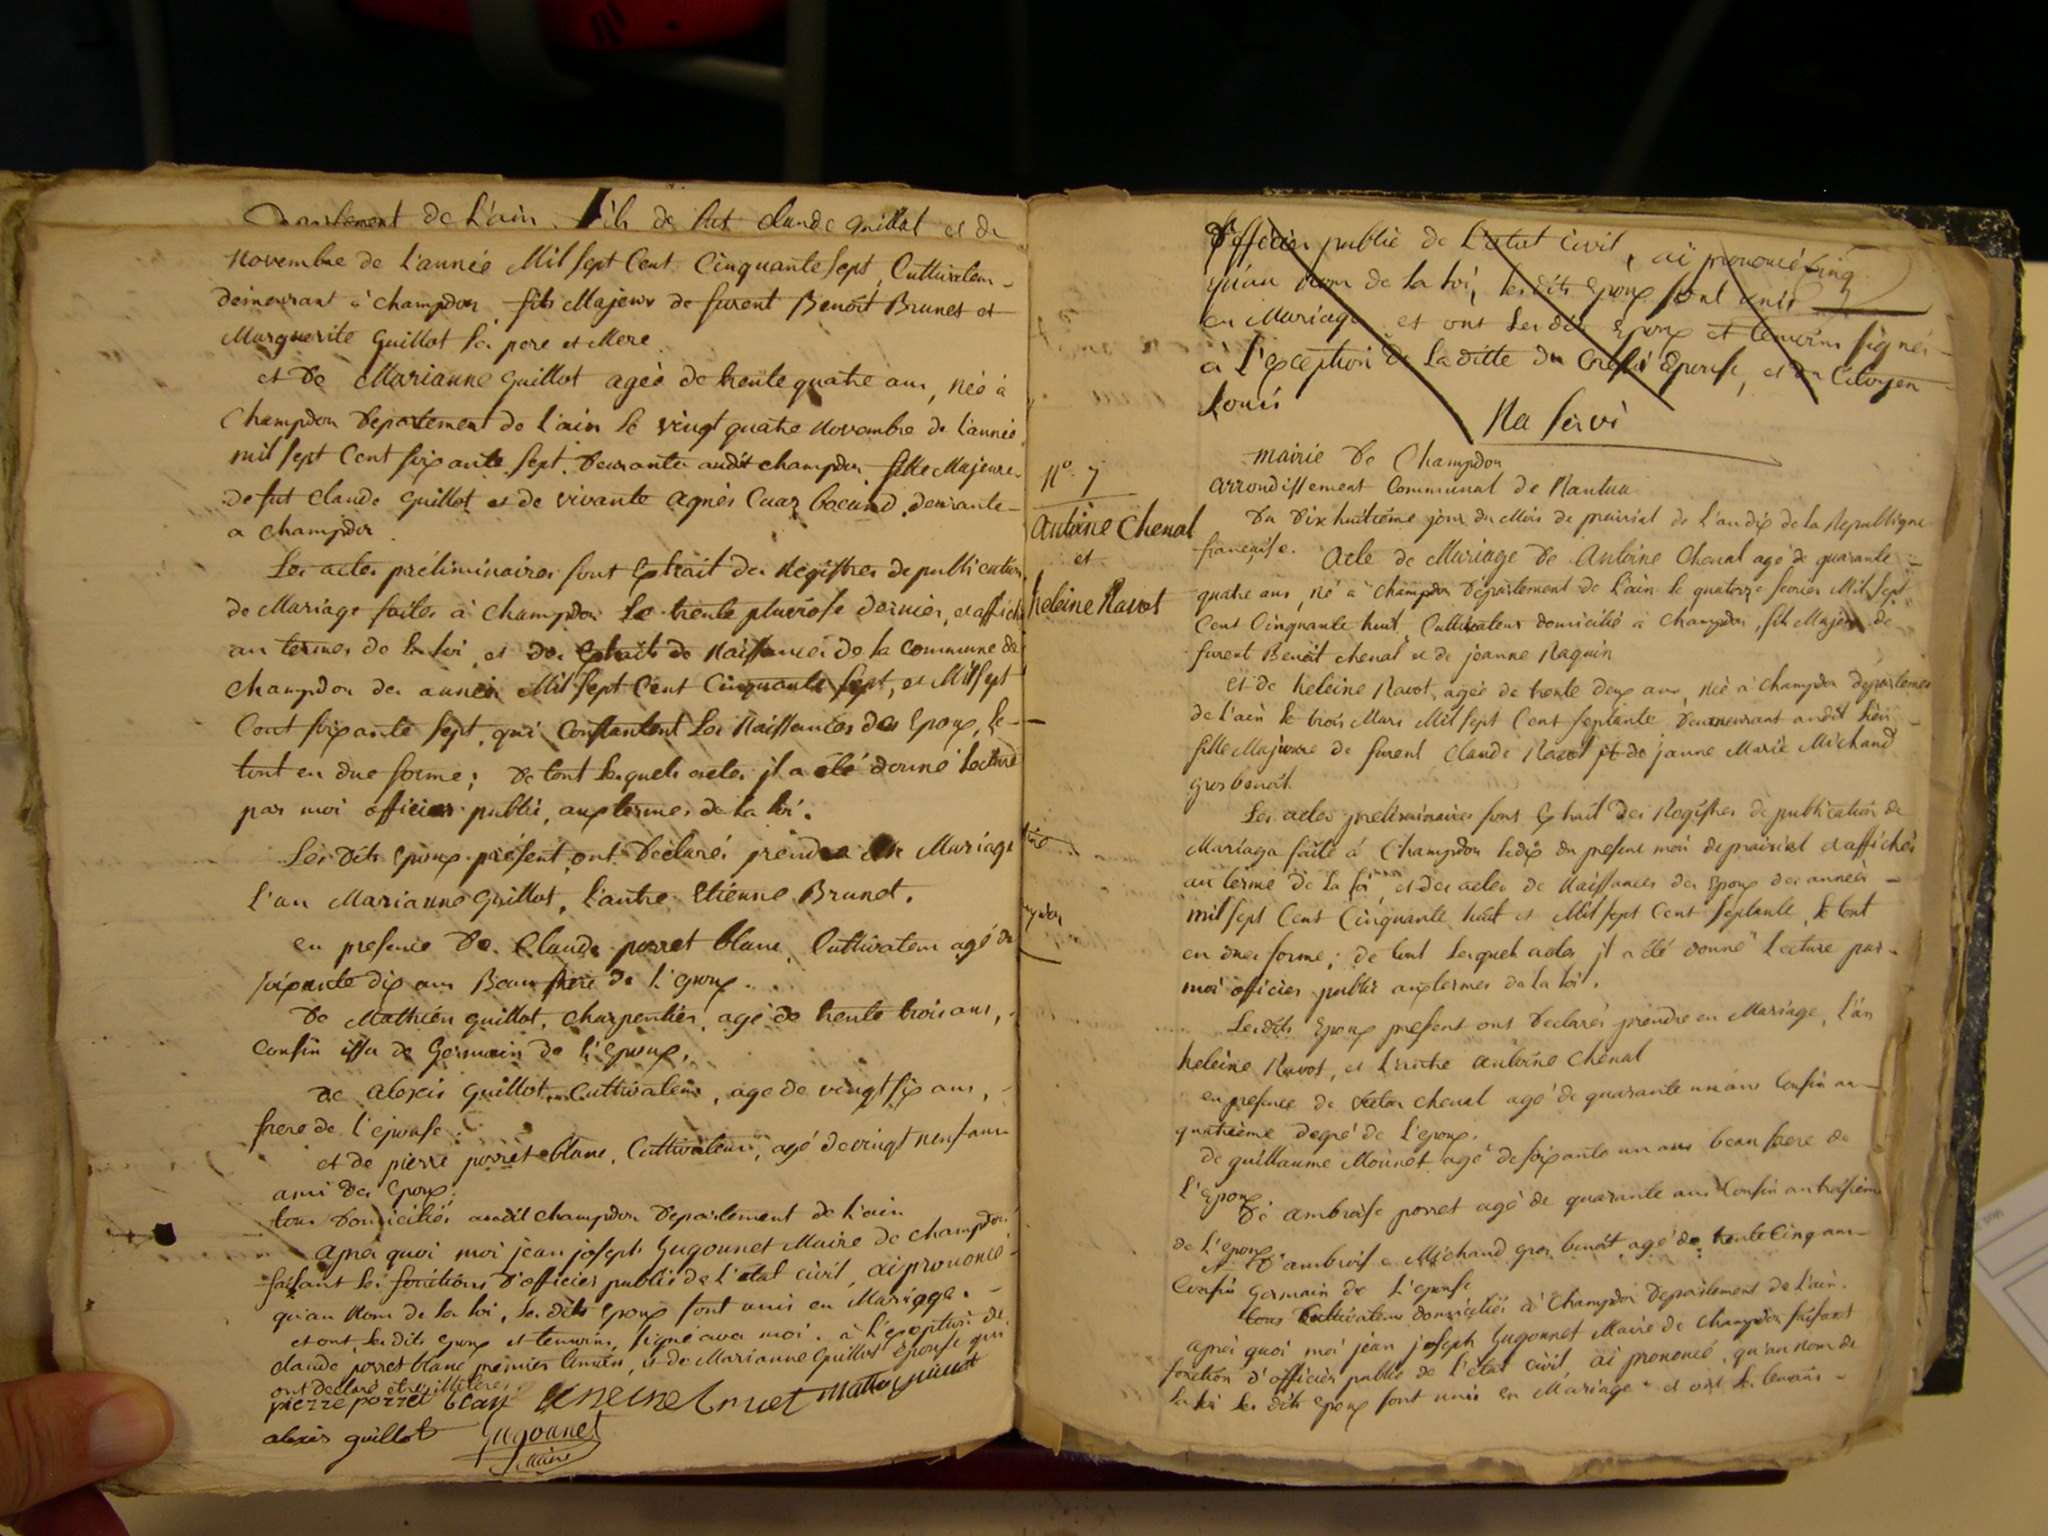 Departement de L'ain. fils de fut claude guillot et de
novembre de L'année Mil sept Cent Cinquante sept, Cultivateur
demeurant à champdor, fils Majeur de furent Benoit Brunet et
Marguerite Guillot ses pere et Mere
et de Marianne guillot ageé de trente quatre ans, neé à
Champdor Departement de L'ain le vingt quatre novembre de L'année
mil sept Cent soixante sept. deurante audit champdor, fille Majeure
de fut Claude guillot et de vivante Agnès Caaz bocund, deurante
a champdor
Les actes préliminaires sont Extrait des Registres de publication
de Mariage faites à champdor le trente pluviose dernier, et affiché
au termes de la loi, et des Extraits de Naissances de la Commune de
Champdor des annéés Mil sept Cent Cinquante sept, et Mil sept
Cent soixante sept, qui Constantent Les Naissances des Epoux, le
tout en due forme; de tout lesquels actes jl a été donné Lecture
par moi officier public, aux termes de la loi.
Les dits Epoux présent ont Déclarés prendre en Mariage
L'un Marianne Guillot, L'autre Etienne Brunet.
en presence de Claude porret blanc Cultivateur agé de
soixante dix ans Beau frere de L'epoux.
De Mathieu guillot, charpentier, agé de trente trois ans,
Cousin issu de Germain de L'epoux,
de alexis guillot Cultivateur, age de vingt six ans,
frere de L'epouse.
et de pierre porret blanc, Cultivateur, agé de vingt neuf ans
ami des Epoux.
tous Domiciliés audit champdor Departement de L'ain
apres quoi moi jean joseph Gugonnet Maire de champdor
faisant les fonctions d'officier public de L'état civil, ai prononcé
qu'au Nom de la loi, les dits Epoux sont unis en Mariage.
et ont, les dits epoux et temoins, signé avec moi. à L'exeption de
claude porret blanc premier temoin, et de Marianne guillot Epouse qui
ont declaré être illiteres.
pierre porret blan
alexis guillot Gugonnet
Maire
D'officier public de L'état civil, ai prononcé
qu'au nom de la loi, les dits Epoux sont unis
en Mariage et ont les dits Epoux et temoins signés
à L'exception de La ditte du Epouse, et du Citoyen
Louis
Na servi
Mairie de Champdor
Arrondissement Communal de Nantua
N° 7
Antoine Chenal
et
heleine Ravot
Du Dix huitiéme jour du Mois de prairial de L'an dix de la Republique
française. Acte de Mariage de Antoine Chenal agé de quarante
quatre ans, né à Champdor Département de L'ain le quatorze fevrier Mil Sept
Cent Cinquante huit, Cultivateur domicilié à Champdor, fils Majeur de
furent Benoit chenal et de jeanne Raquin
Et de heleine Ravot, ageé de trente deux ans, neé à champdor département
de L'ain le trois Mars Mil sept Cent septante Demeurant audit Lieu
fille Majeure de furent Claude Ravot et de janne Marie Michaud
gros benoit.
Les actes preliminaires sons Extrait des Registres de publication de
Mariage faite à Champdor le dix du present mois de prairial et affichés
au terme de la loi et des actes de Naissances des Epoux des années
mil sept Cent Cinquante huit et Mil sept Cent Septante, le tout
en due forme; de tout lesquels actes jl a été donné Lecture par
moi officier public aux termes de la loi.
Lesdits Epoux present ons Declarés prendre en Mariage, L'un
heleine Ravot, et L'autre Antoine Chenal
en presence de chenal agé de quarante un ans Cousin au
quatrième degré de L'epoux.
de guillaume Mounet agé de soixante un ans beau frere de
L'Epoux.
De ambroise porret agé de quarante ans Cousin au troisieme
de L'epoux
D'ambroise Michaud gros benoit, agé de trente Cinq ans
Cousin Germain de L'epouse
tous Cultivateurs domiciliés à Champdor Departement de L'ain.
aprés quoi moi jean joseph Gugonnet Maire de Champdor faisant
fonction d'officier public de l'état civil, ai prononcé, qu'au nom de
la loi les dits Epoux sont unis en Mariage et ont les temoins